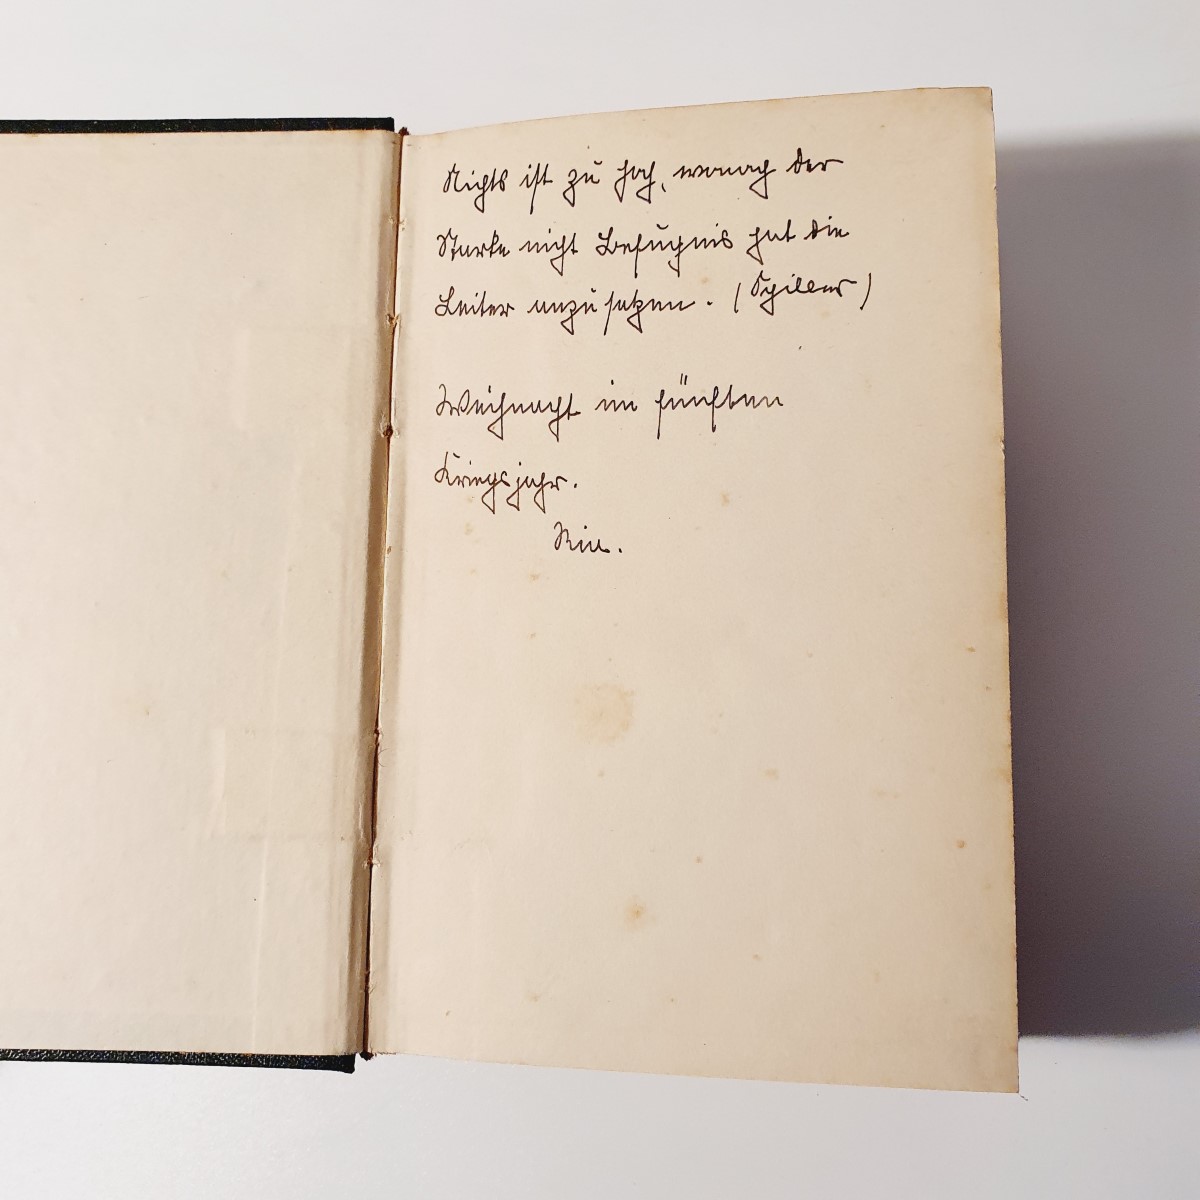 Nichts ist zu hoch, wonach der
Starke nicht Befugnis hat die
Leiter anzusetzen. (Schiller)
Weihnacht im fünften
Kriegsjahr.